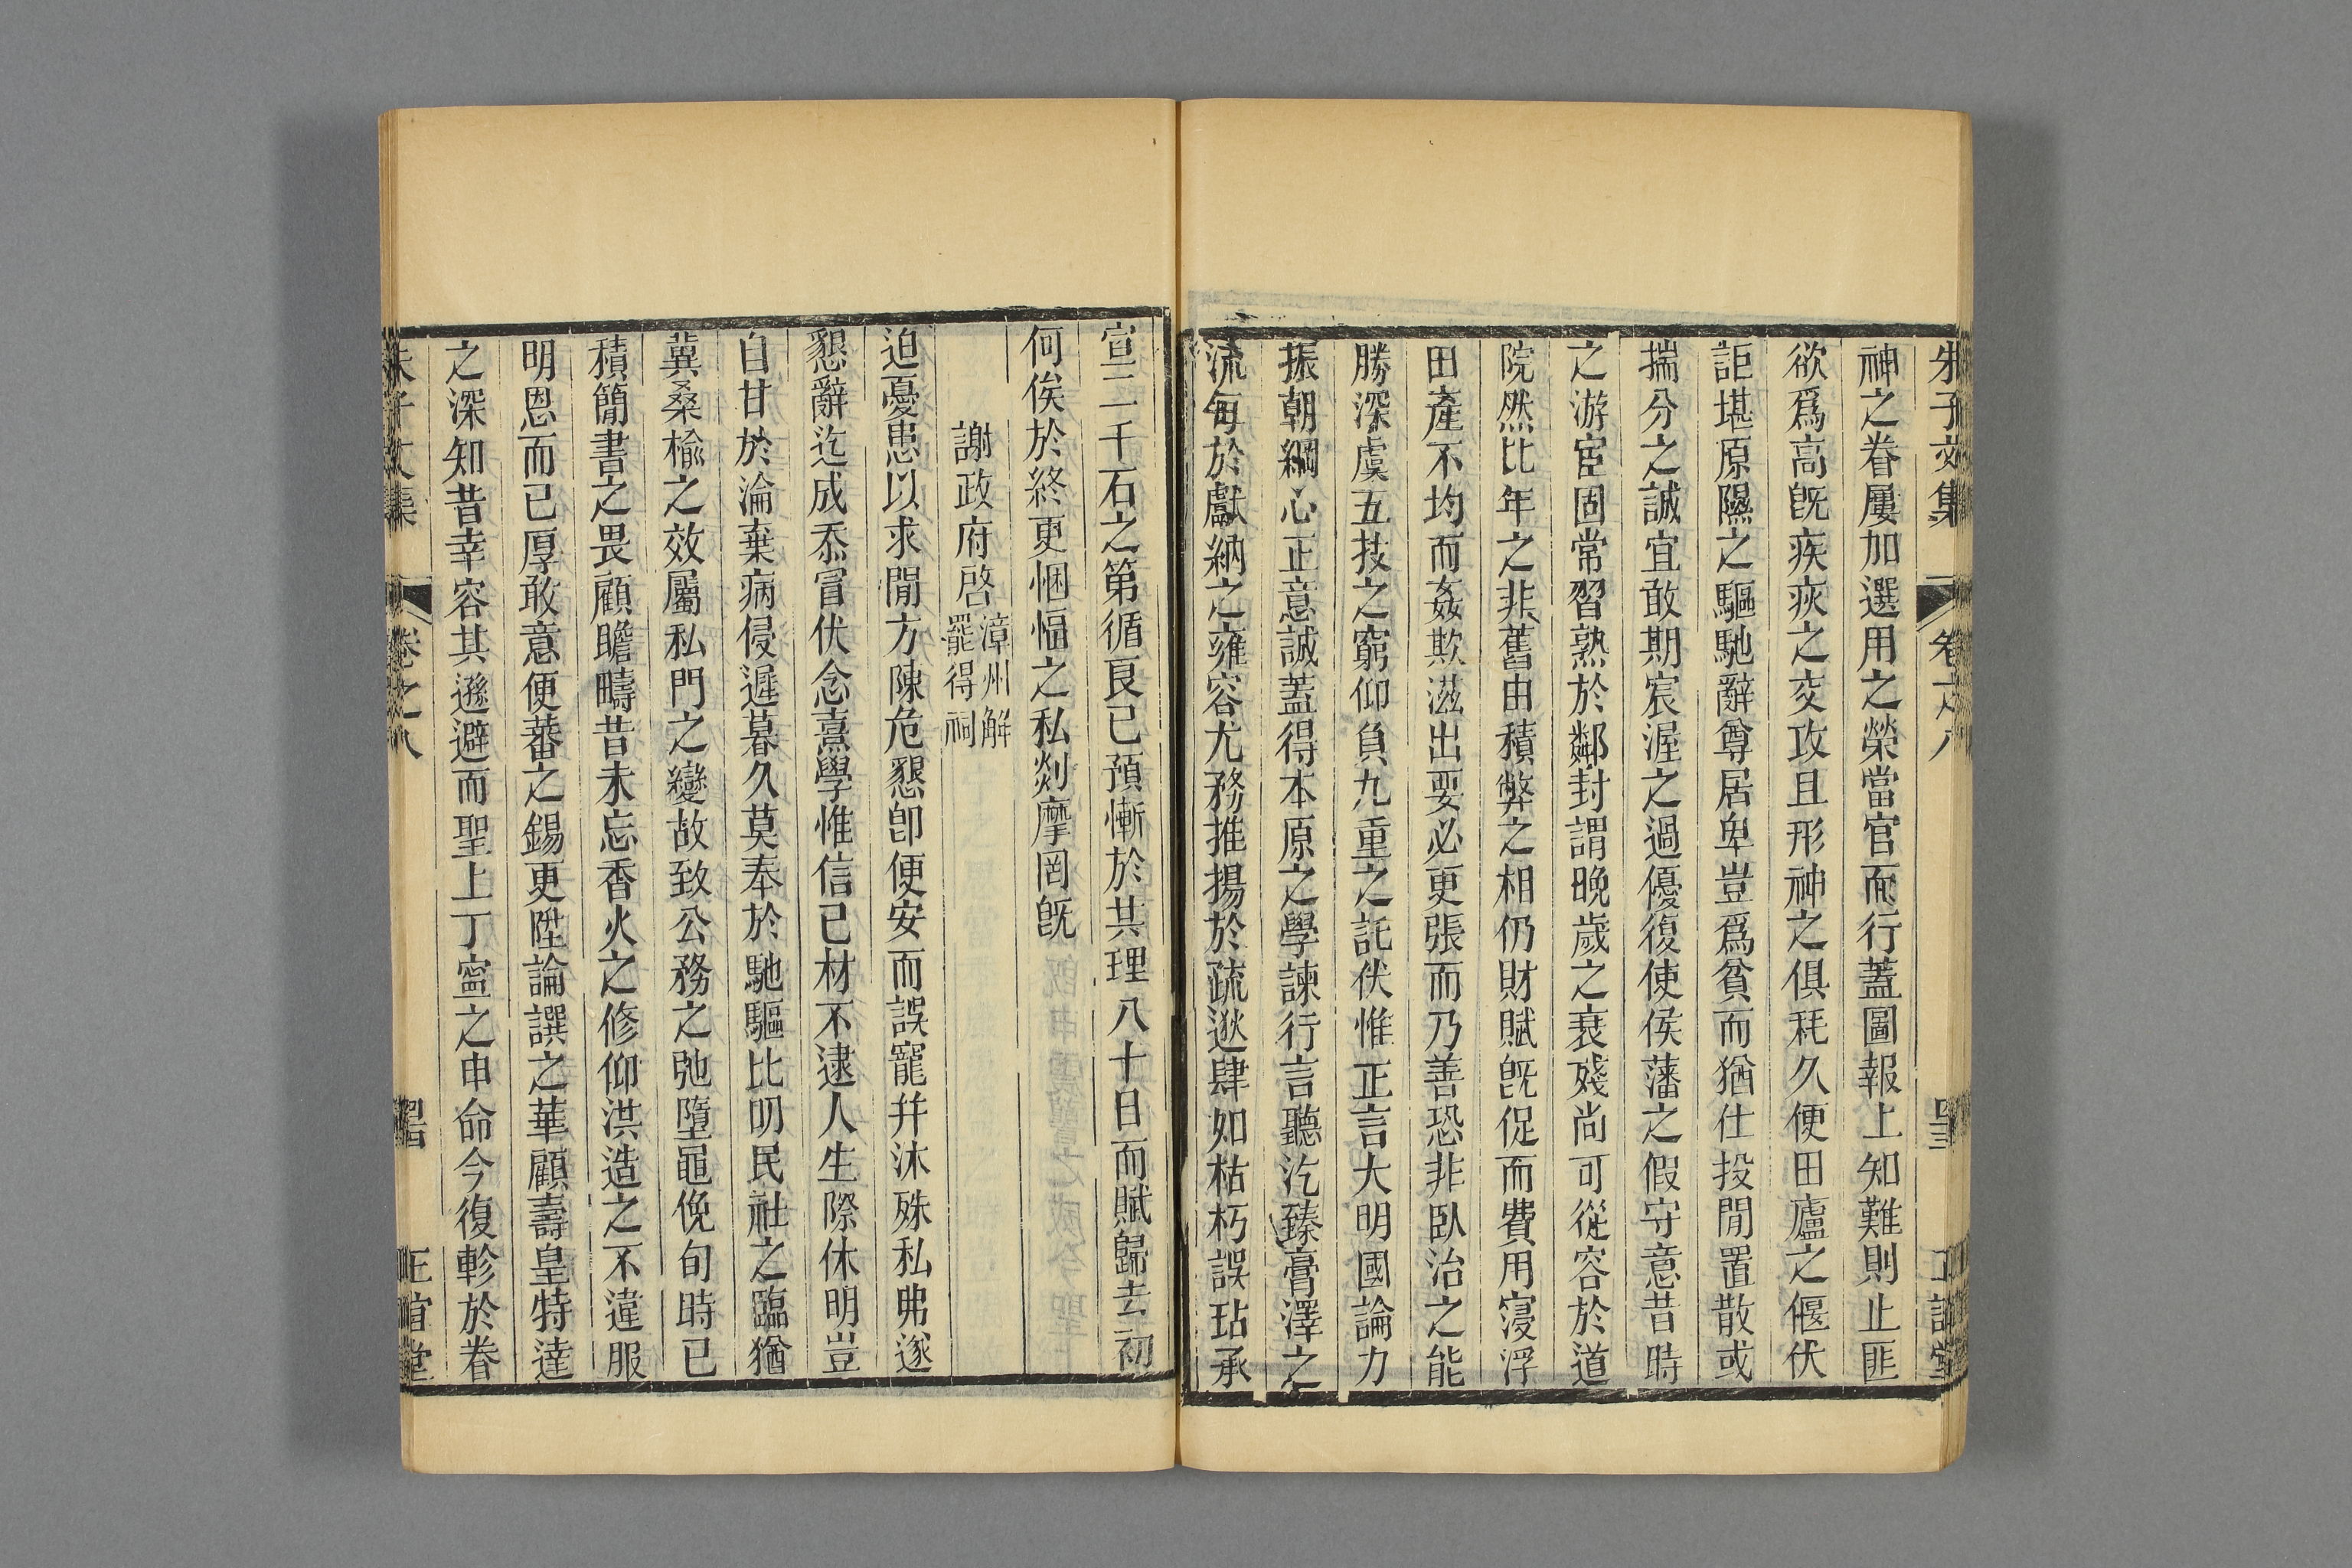 朱子文集
卷之八
神之眷屢加選用之榮當官而行蓋圖報上知難則止匪
欲爲高旣疾疢之交攻且形神之俱耗久便田廬之偃伏
詎堪原隰之驅馳辭尊居卑豈爲貧而猶仕投閒置散或
揣分之誠宜敢期宸渥之過優復使侯藩之假守意昔時
之游宦固常習熟於鄰封謂晚歲之衰殘尚可從容於道
院然比年之非舊由積弊之相仍財賦旣促而費用寖浮
田產不均而姦欺滋出要必更張而乃善恐非臥治之能
勝深虞五技之窮仰負九重之託伏惟正言大明國論力
振朝綱心正意誠蓋得本原之學諫行言聽汔臻膏澤之
流每於獻納之雍容尤務推揚於疏逖肆如枯朽誤玷承
宣二千石之第循良已預慚於共理八十日而賦歸去初
何俟於終更悃愊之私剡摩罔旣
謝政府啓
漳州解
罷得祠
迫憂患以求閒方陳危懇卽便安而誤寵并沐殊私弗遂
懇辭迄成忝冒伏念熹學惟信己材不逮人生際休明豈
自甘於淪棄病侵遲暮久莫奉於馳驅比叨民社之臨猶
冀桑榆之效屬私門之變故致公務之弛墮黽俛旬時已
積簡書之畏顧瞻疇昔未忘香火之修仰洪造之不違服
明恩而已厚敢意便蕃之錫更陞論譔之華顧壽皇特達
之深知昔幸容其遜避而聖上丁寧之申命今復軫於眷
朱子文集
卷之八